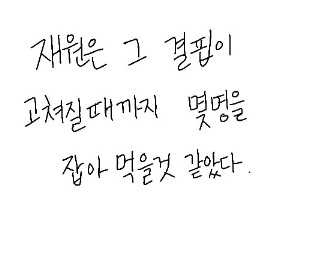 재원은 그 결핍이
고쳐질때까지 몇명을
잡아 먹을것 같았다.